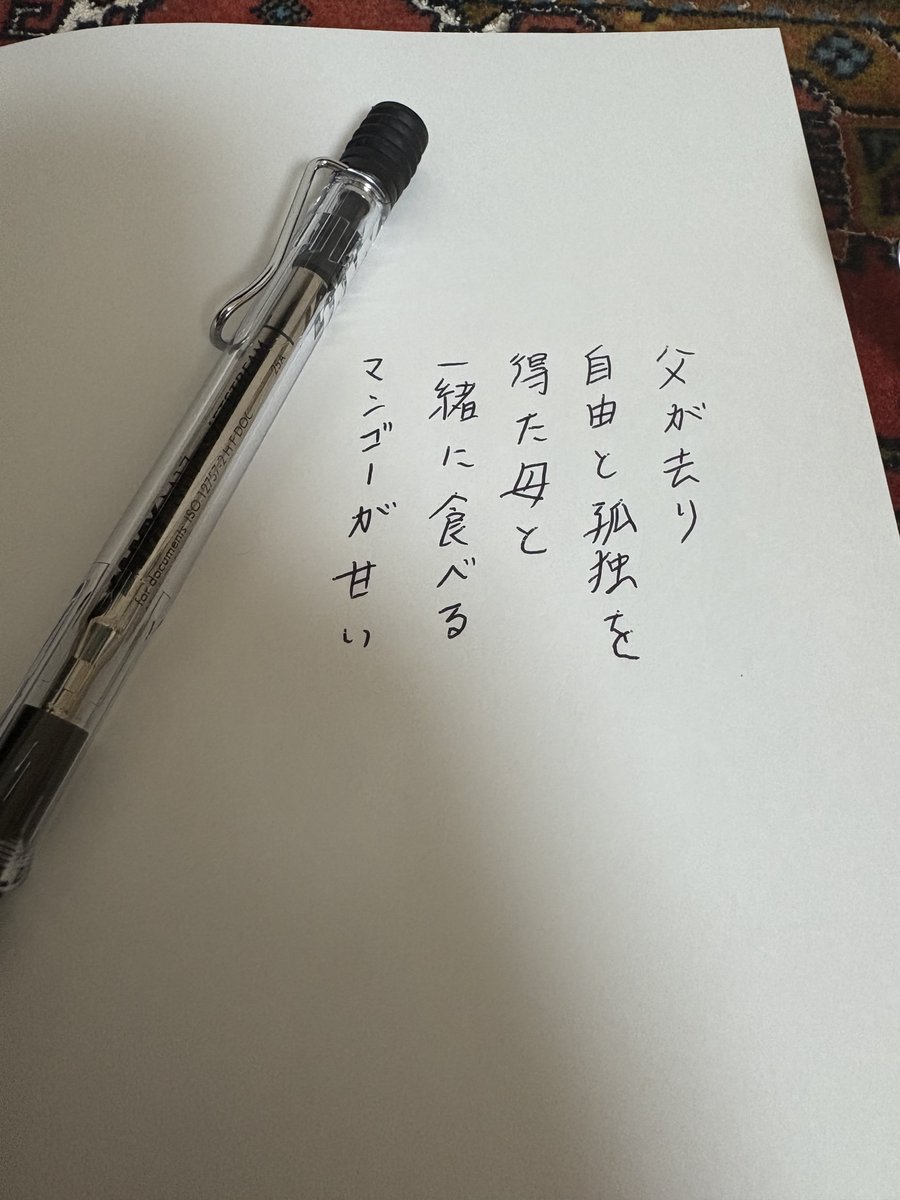 父が去り
自由と孤独を
得た母と
一緒に食べる
マンゴーが甘い
JETSTREAM
for documents ISO 12757-2 H F DOC